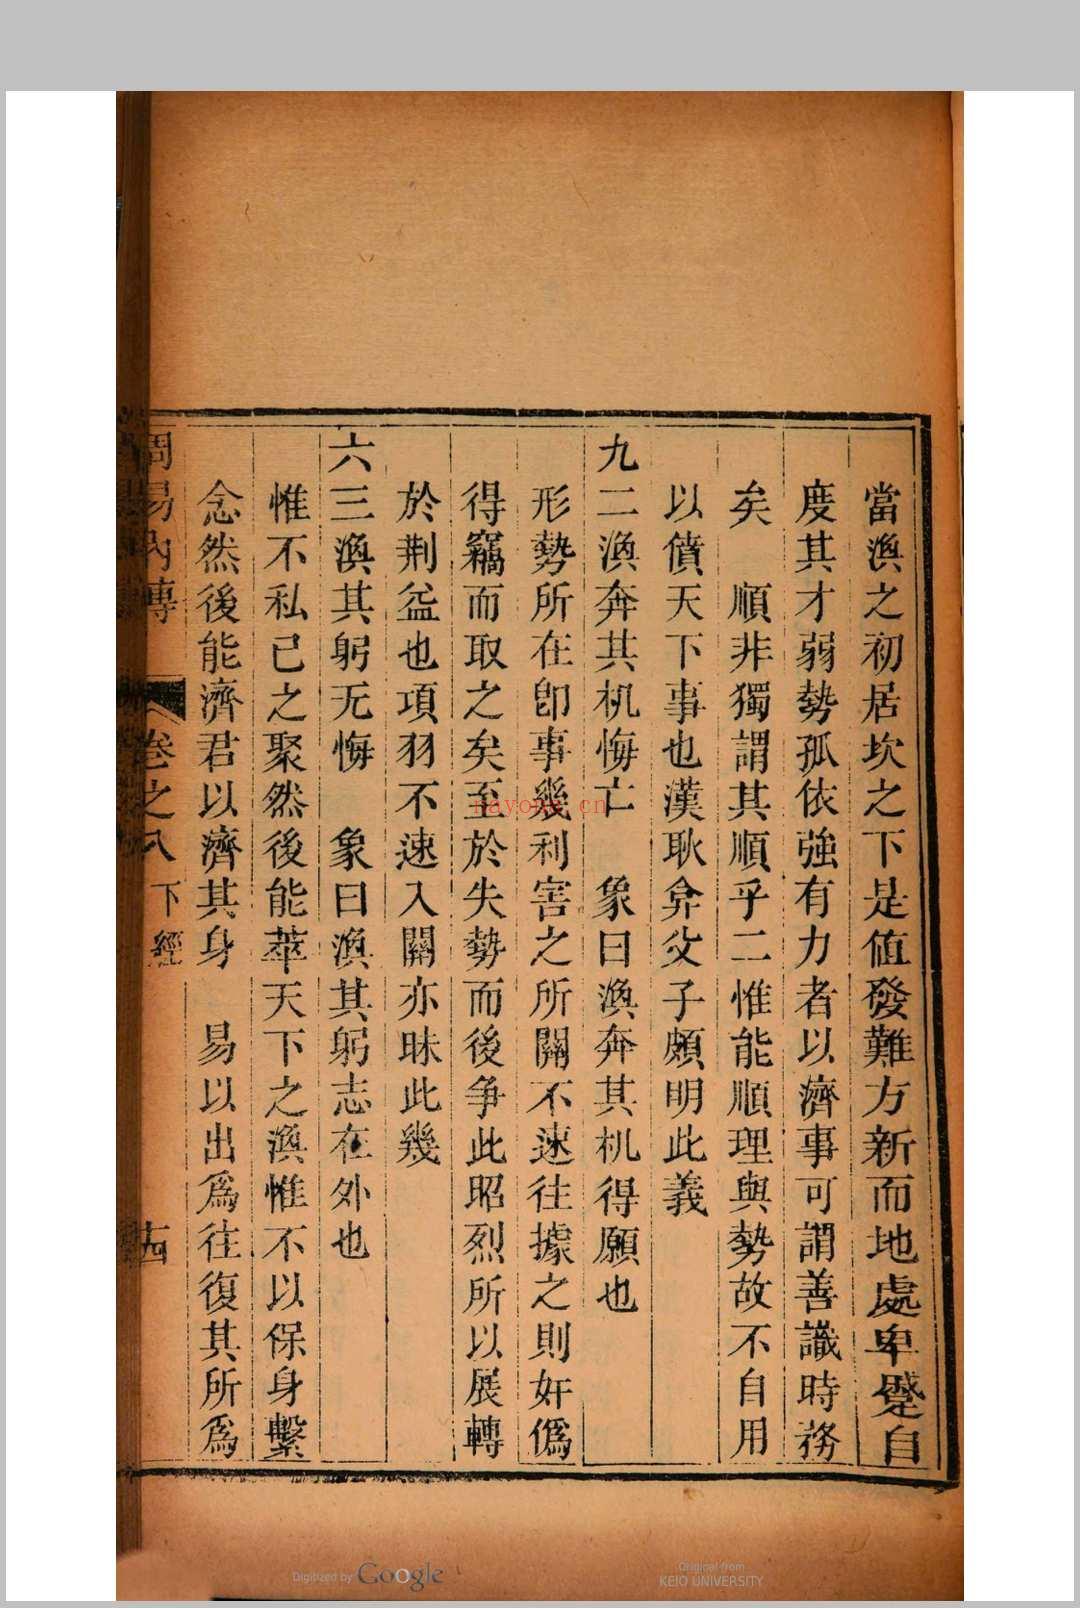 當渙之初居坎之下是值發難方新而地處卑蹙自
度其才弱勢孤依強有力者以濟事可謂善識時務
矣　順非獨謂其順乎二惟能順理與勢故不自用
以僨天下事也漢耿弇父子頗明此義
九二渙奔其机悔亡　象曰渙奔其机得願也
形勢所在卽事幾利害之所關不速往據之則奸僞
得竊而取之矣至於失勢而後争此昭烈所以展轉
於荆益也項羽不速入關亦昧此幾
六三渙其躬无悔　象曰渙其躬志在外也
惟不私己之聚然後能萃天下之渙惟不以保身繫
念然後能濟君以濟其身　易以出爲往復其所爲
周易內傳　卷之八　下經　十四
nayona.cn
Digitized by Google
Original from
KEIO UNIVERSITY